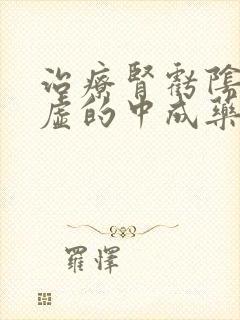 治療腎虧陰
虛的中成藥
羅懌